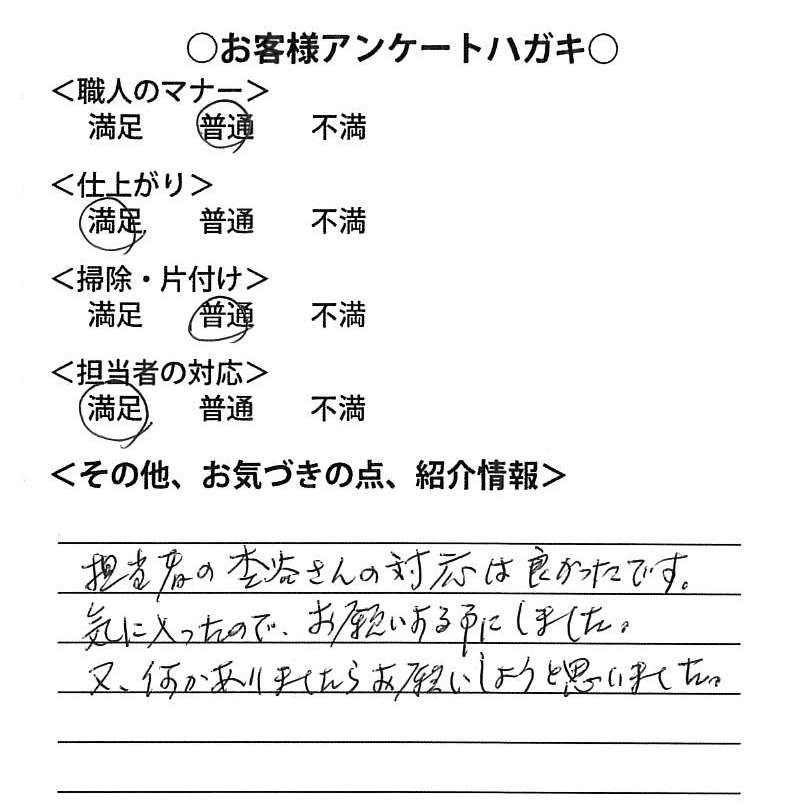 ○お客様アンケートハガキ○
＜職人のマナー＞
満足 普通 不満
＜仕上がり＞
満足 普通 不満
＜掃除・片付け＞
満足 普通 不満
＜担当者の対応＞
満足 普通 不満
＜その他、お気づきの点、紹介情報＞
担当者の さんの対応は良かったです。
気に入ったので、お願いする事にしました。
又、何かありましたらお願いしようと思いました。